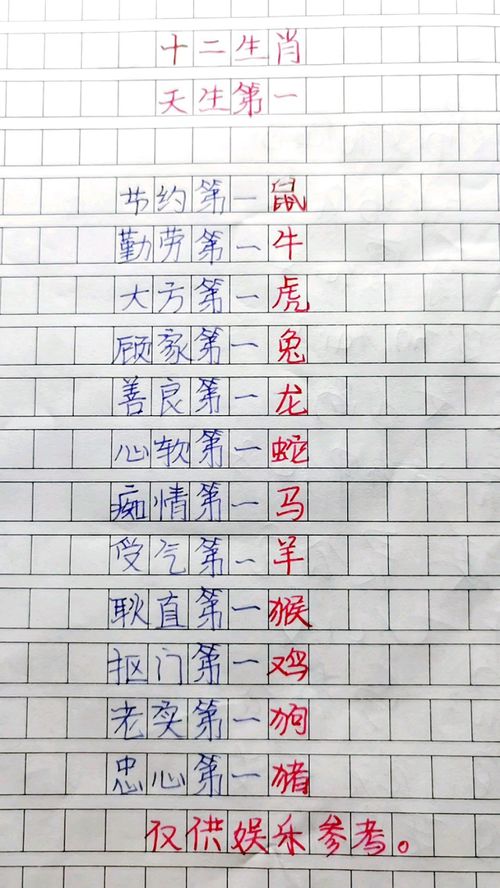 十二生肖
天生第一
节约第一鼠
勤劳第一牛
大方第一虎
顾家第一兔
善良第一龙
心软第一蛇
痴情第一马
受气第一羊
耿直第一猴
抠门第一鸡
老实第一狗
忠心第一猪
仅供娱乐参考。